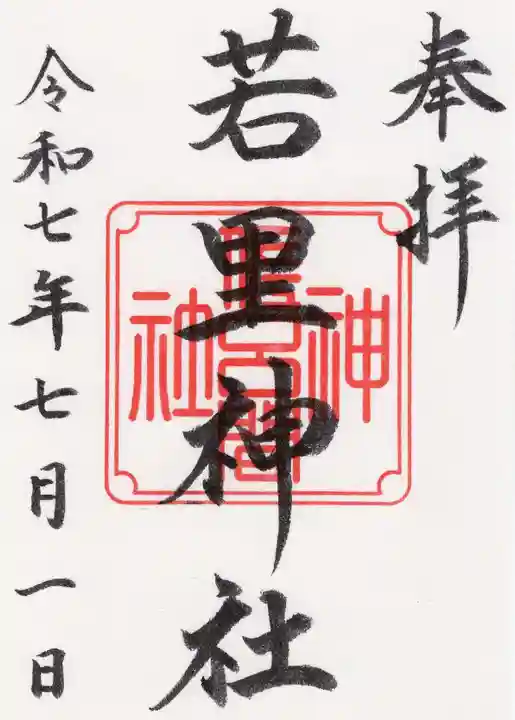 奉拝
若里神社
令和七年七月一日
神
社